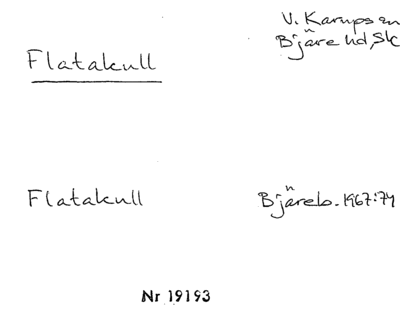 V. Karups sn
Bjäre hd, Sk
Flatakull
Flatakull
Bjäreb. 1967:74
Nr 19193